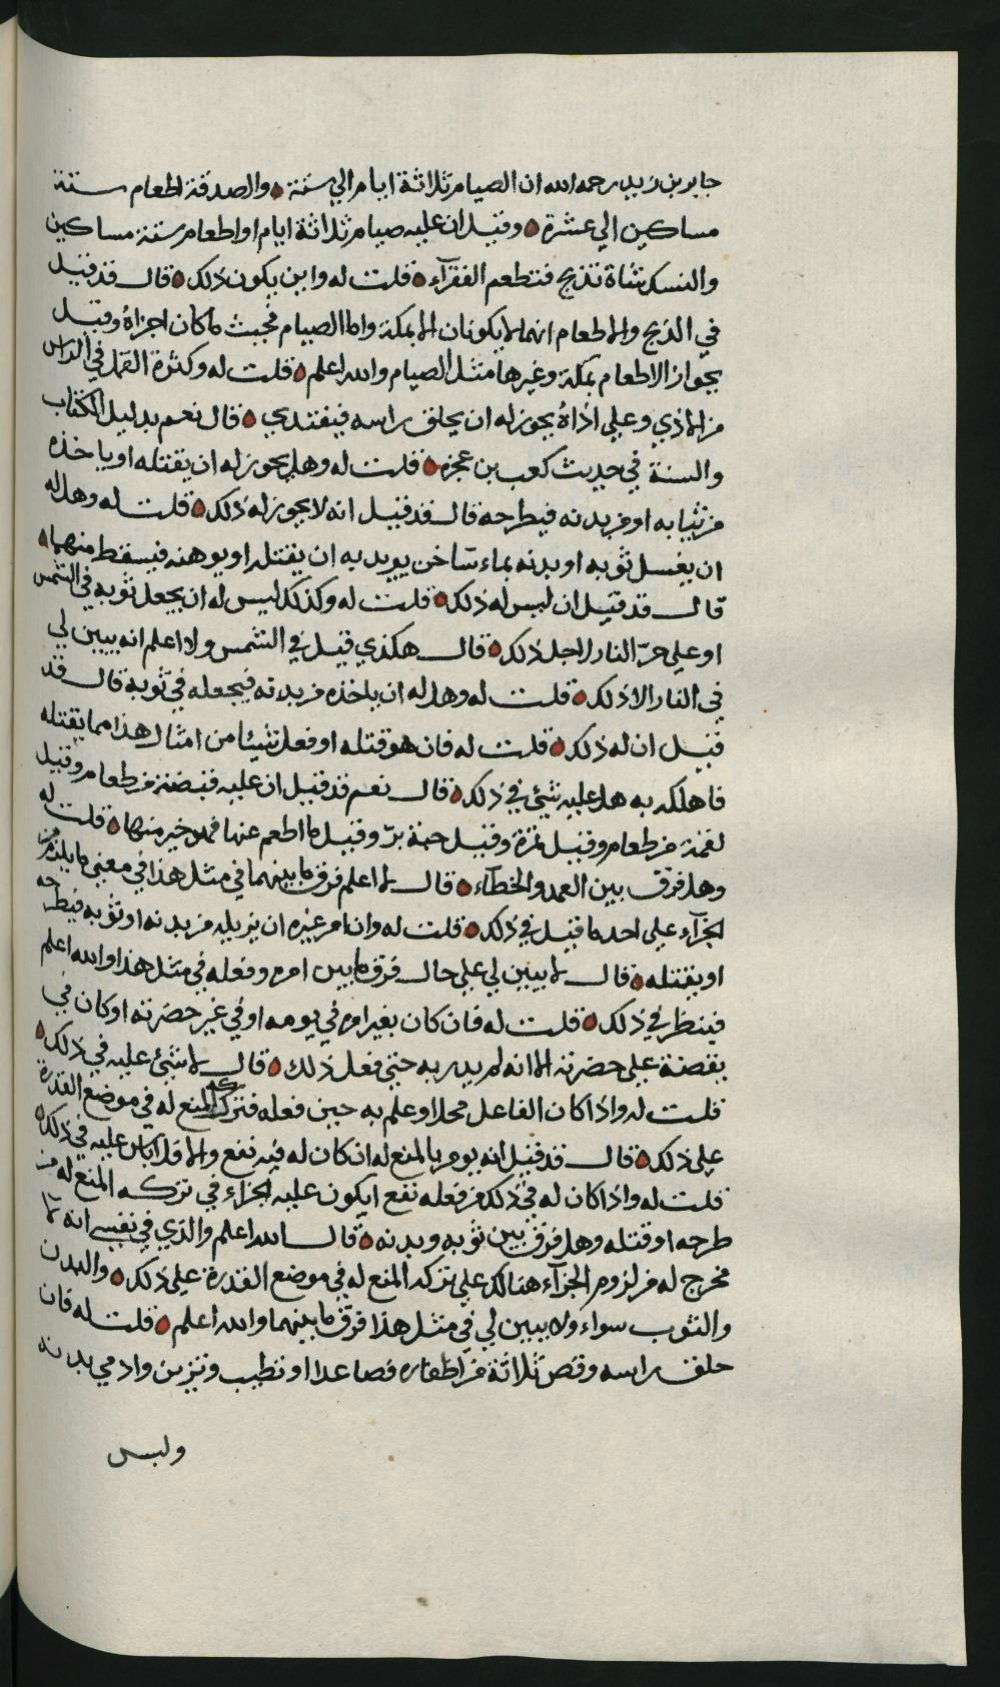 جابر بن زيد رحمه الله ان الصيام ثلاثة ايام الي ستة والصدقة اطعام ستة
مساكين الي عشرة وقيل ان عليه صيام ثلاثة ايام او اطعام ستة مساكين
والنسك شاة تذبح فتطعم الفقرآء قلت له واين يكون ذلك قال قد قيل
في الذبح والاطعام انهما لا يكونان الا بمكة واما الصيام فحيث ما كان اجزاهُ وقيل
بجواز الاطعام بمكة وغيرها مثل الصيام والله اعلم قلت له وكثرة القمل في الراس
من الاذي وعلي اذاهُ يجوز له ان يحلق راسه فيفتدي قال نعم بدليل الكتاب
والسنة في حديث كعب بن عجرة قلت له وهل يجوز له ان يقتله او ياخذه
من ثيابه او من بدنه فيطرحه قال قد قيل انه لا يجوز له ذلك قلت له وهل له
ان يغسل ثوبه او بدنه بماء سّاخن يريد به ان يقتله او يوهنه فيسقط منهما
قال قد قيل ان ليس له ذلك قلت له وكذلك ليس له ان يجعل ثوبه في الشمس
او علي حرّ النار لاجل ذلك قال هكذي قيل في الشمس ولا اعلم انه يبين لي
في النار الا ذلك قلت له وهل له ان ياخذه من بدنه فيجعله في ثوبه قال قد
قيل ان له ذلك قلت له فان هو قتله او فعل شيئا من امثال هذا مما يقتله
فاهلكه به هل عليه شيئ في ذلك قال نعم قد قيل ان عليه قبضة من طعام وقيل
لقمة من طعام وقيل تمرة وقيل حبة برّ وقيل ما اطعم عنها فهو خير منها قلت له
وهل فرق بين العمد والخطآء قال لا اعلم فرق ما بينهما في مثل هذا في معني ما يلزم من
الجزآء علي احد ما قيل في ذلك قلت له وان امر غيره ان يزيله من بدنه او ثوبه فيطرحه
او يقتله قال لا يبين لي علي حال فرق ما بين امره وفعله في مثل هذا والله اعلم
فينظر في ذلك قلت له فان كان بغير امره في يومه او في غير حضرته او كان في
يقضة علي حضرته الا انه لم يدر به حتي فعل ذلك قال لا شيئ عليه في ذلك
قلت له واذا كان الفاعل محلا وعلم به حين فعله فترك المنع له في موضع القدرة
علي ذلك قال قد قيل انه يومر بالمنع له ان كان له فيه نفع والا فلا باس عليه في ذلك
قلت له واذا كان له في ذلك من فعله نفع ايكون عليه الجزاء في تركه المنع له من
طرحه او قتله وهل فرق بين ثوبه وبدنه قال الله اعلم والذي في نفسي انه لا
مخرج له من لزوم الجزآء هنالك علي تركه المنع له في موضع القدرة علي ذلك والبدن
والثوب سواء ولا يبين لي في مثل هذا فرق ما بينهما والله اعلم قلت له فان
حلق راسه وقص ثلاثة من اظفاره فصاعدا او تطيب وتزين وادمي بدنه
ولبس